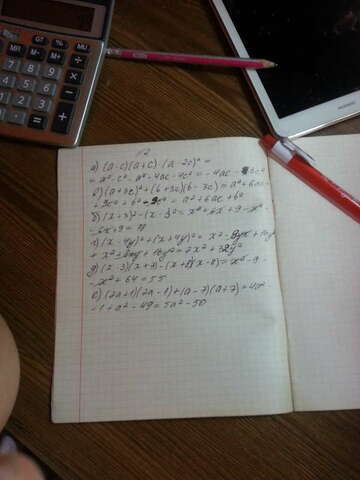 GT % √ MU
MR M- M+ ÷
7 8 9
4 5 6
1 2 3
0
N2
а) (a-c)(a+c)-(a-2c)² =
= a²-c²-a²-4ac-4c² = -4ac -
б) (a+3c)²+(b+3c)(b-3c) = a²+6ac+
+9c²+b²-9c² = a²+6ac+b²
в) (x+3)²-(x-3)² = x²+6x+9-x²-
-6x+9 = 18
г) (x-4y)²+(x+4y)² = x²-8yx+16y²
+x²+8yx+16y² = 2x²+32y²
д) (x-3)(x+3)-(x+8)(x-8) = x²-9-
-x²+64 = 55
е) (2a+1)(2a-1)+(a-7)(a+7) = 4a²
-1+a²-49 = 5a²-50